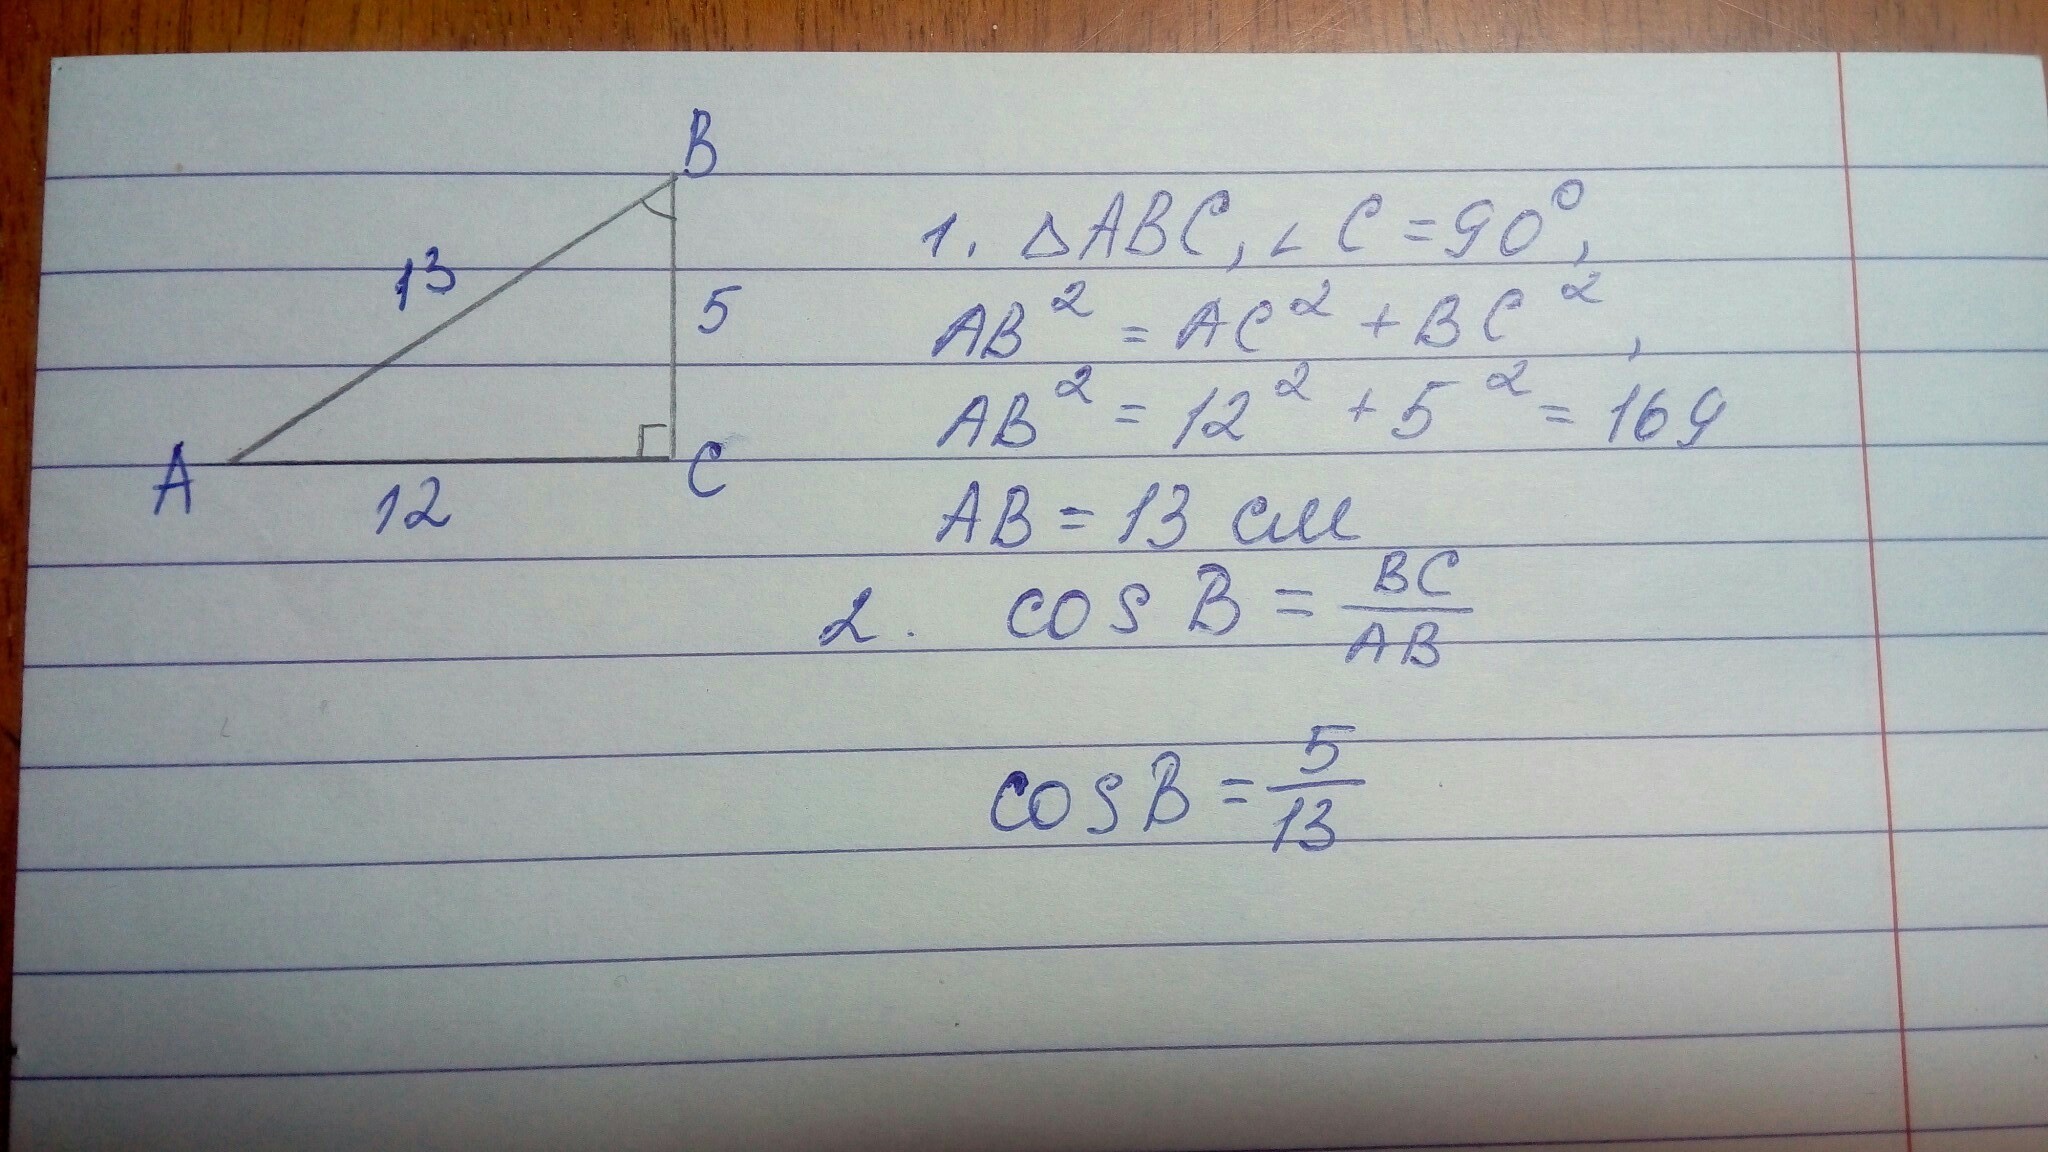 B
13
5
A
12
C
1. △ABC, ∠C = 90°,
AB² = AC² + BC²,
AB² = 12² + 5² = 169
AB = 13 см
2. cos B = BC/AB
cos B = 5/13